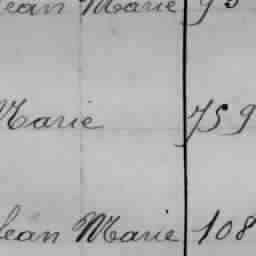 Jean Marie 93
Marie 759
Jean Marie 108